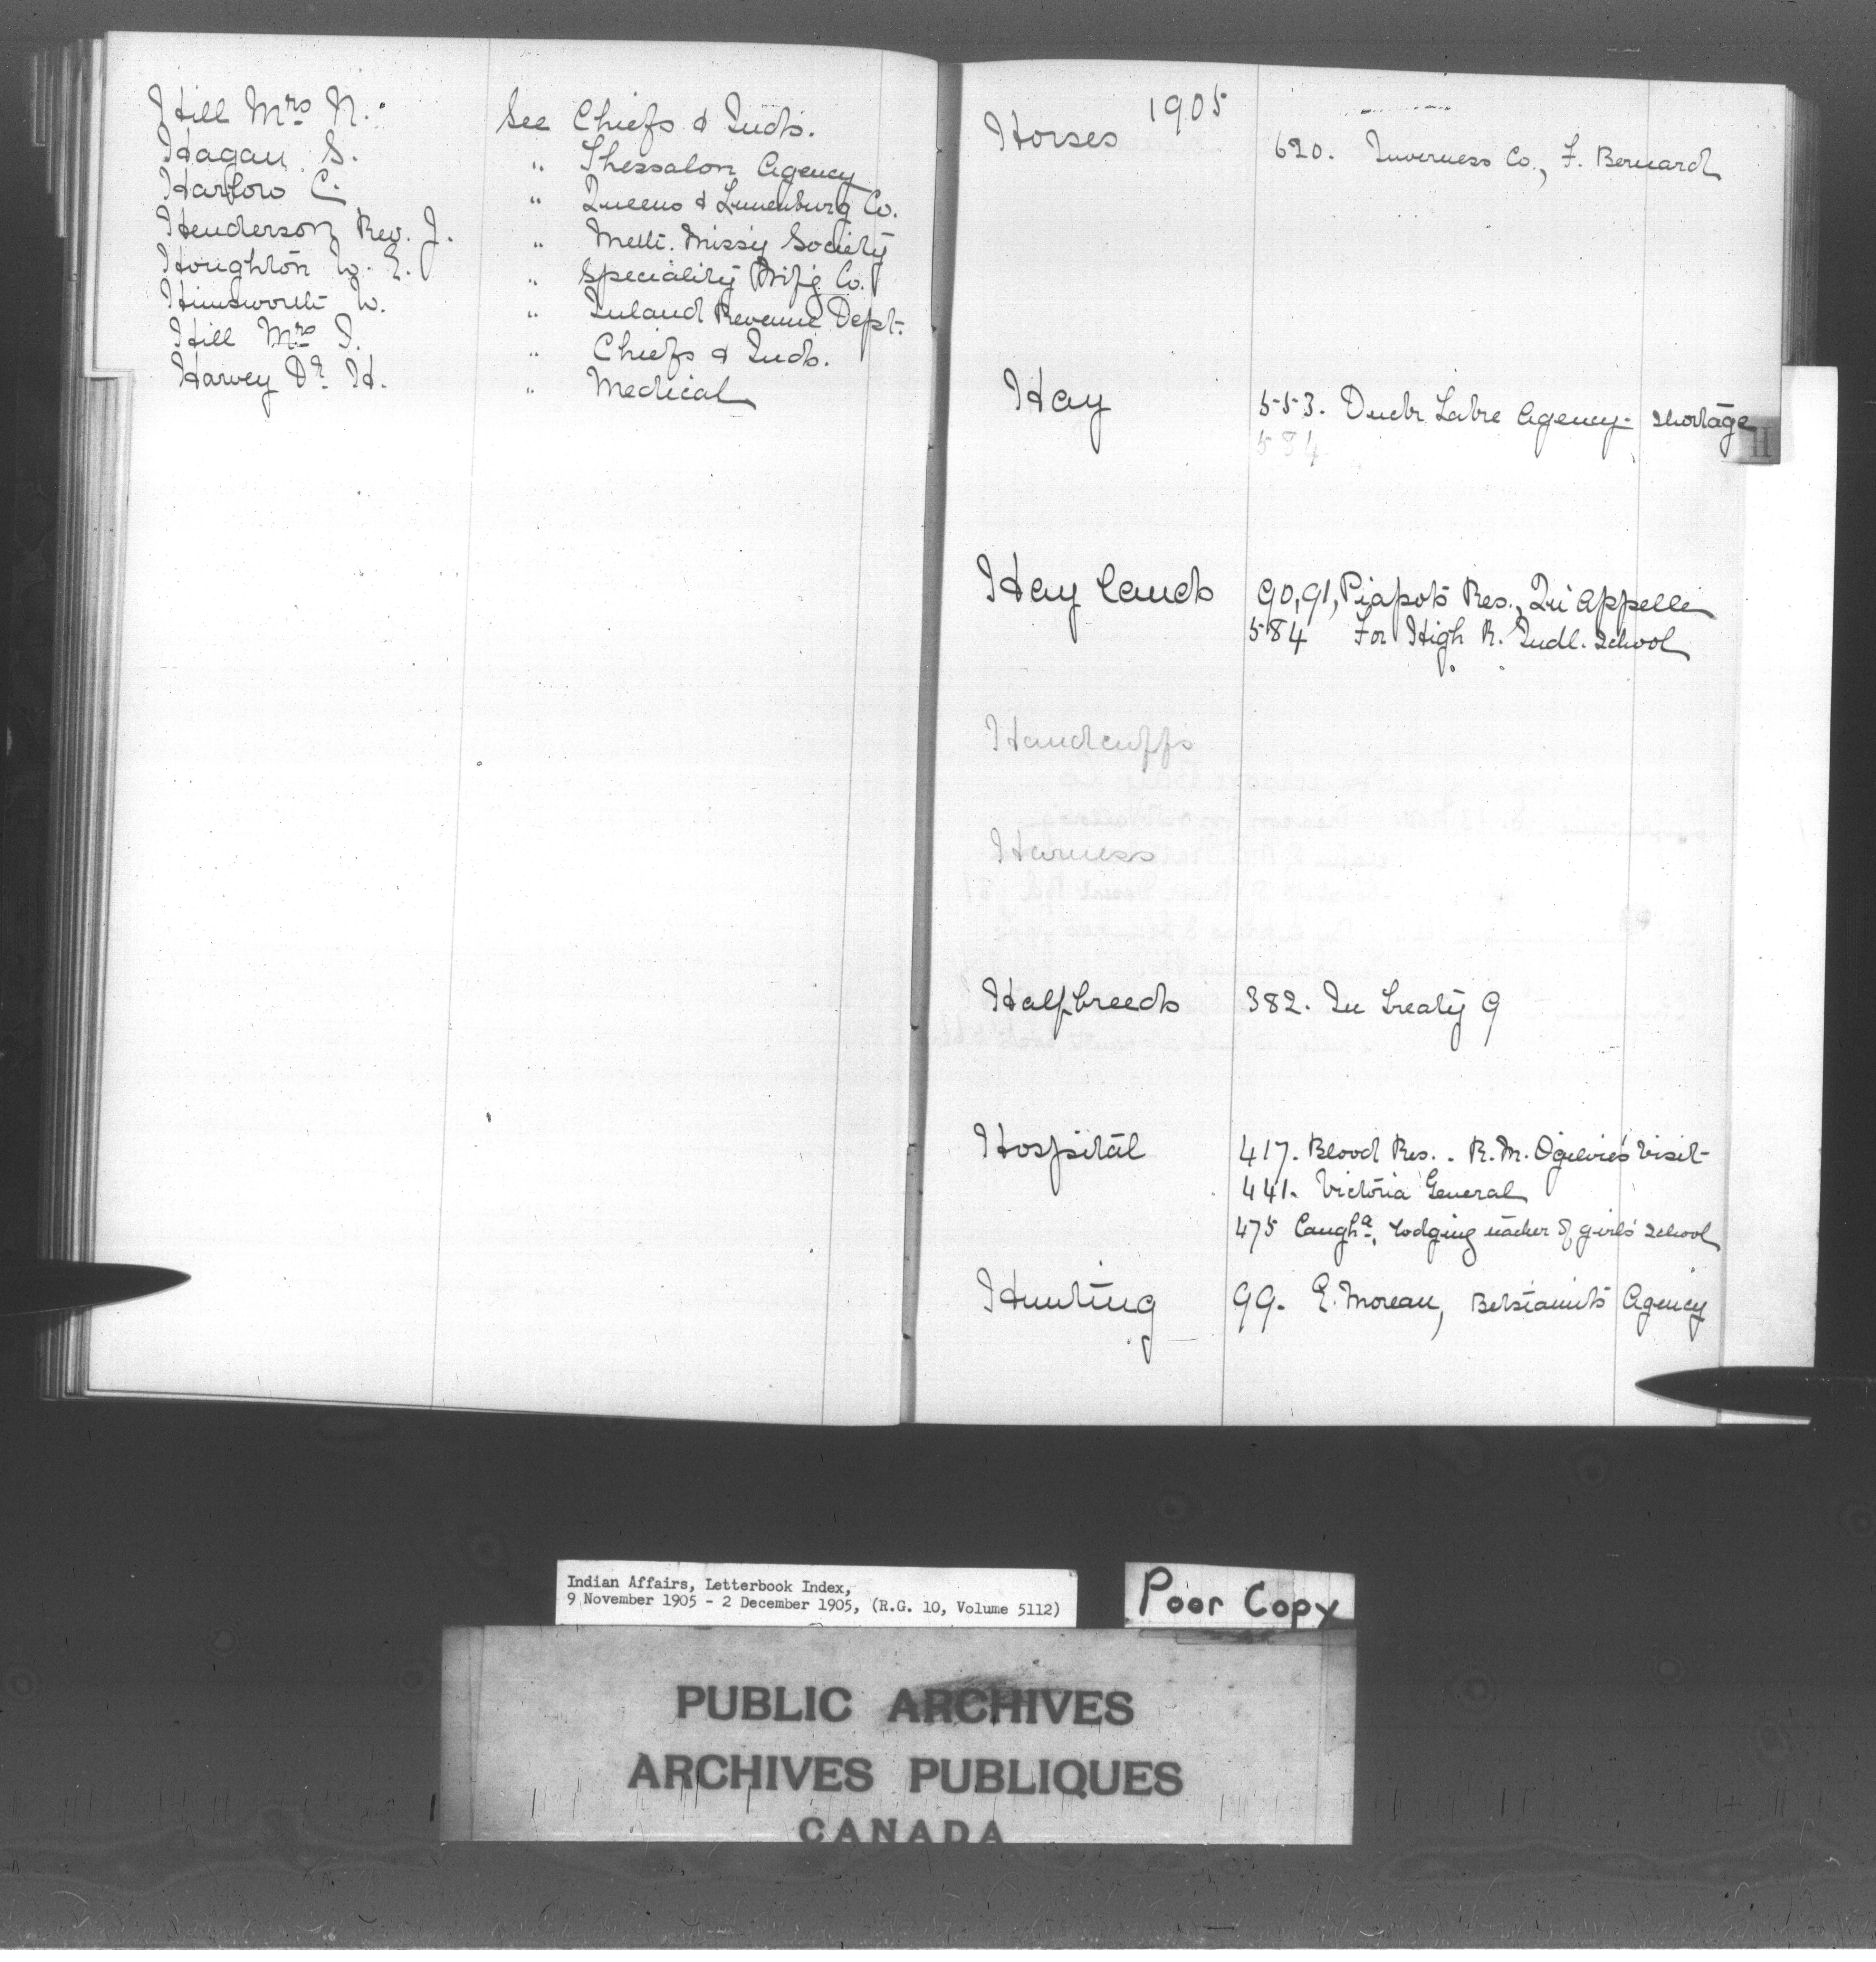 Hill Mrs N. See Chiefs & Inds.
Hagan S. " Thessalon Agency
Harlow C. " Queens & Lunenburg Co.
Henderson Rev. J. " Meth. Missy Society
Houghton W. E. " Speciality Mf'g Co.
Himsworth W. " Inland Revenue Dept.
Hill Mrs I. " Chiefs & Inds.
Harvey Dr. H. " Medical
1905
Horses 620. Inverness Co., F. Bernard
Hay 553. Duck Lake Agency - shortage
584
H
Hay lands 90, 91, Piapots Res., Qu'Appelle
584 For High R. Indl. School
Handcuffs
Harness
Halfbreeds 382. In Treaty 9
Hospital 417. Blood Res. - R. M. Ogilvie's visit
441. Victoria General
475 Caugha. lodging teacher of girls' school
Hunting 99. E. Moreau, Betsiamits Agency
Indian Affairs, Letterbook Index,
9 November 1905 - 2 December 1905, (R.G. 10, Volume 5112)
Poor Copy
PUBLIC ARCHIVES
ARCHIVES PUBLIQUES
CANADA